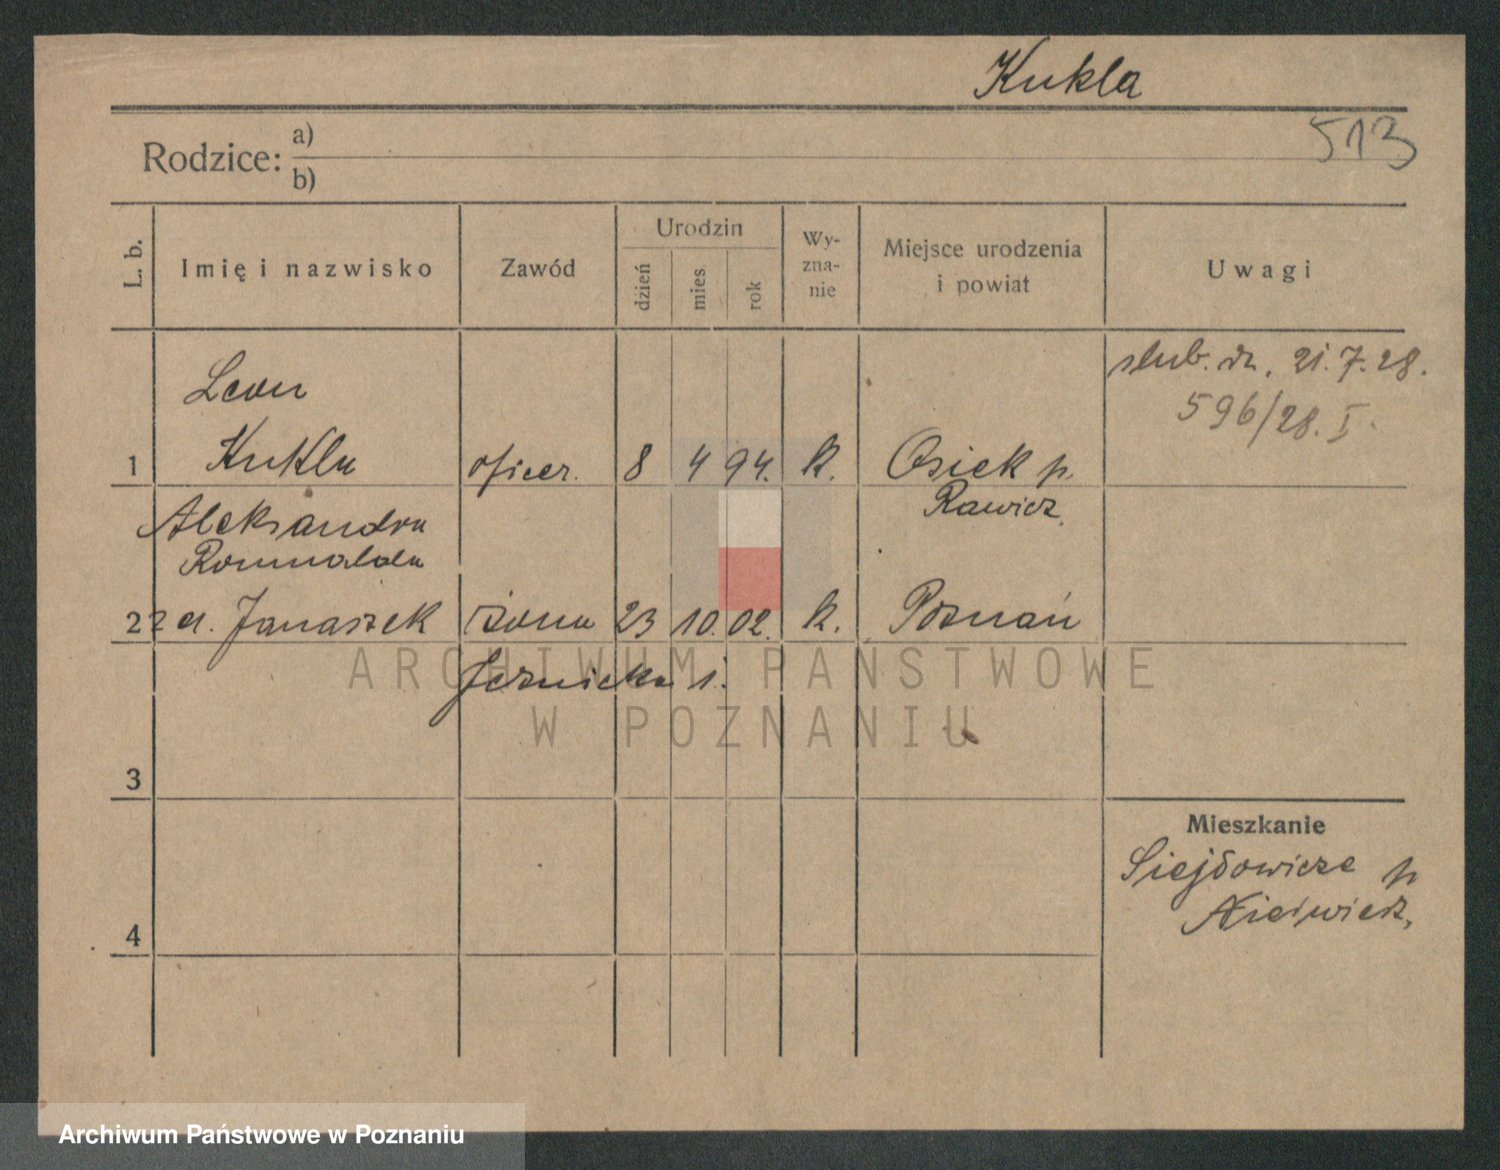 Kukla
513
Rodzice: a)
b)
L. b.
Imię i nazwisko
Zawód
Urodzin
dzień
mies
rok
Wy-
zna-
nie
Miejsce urodzenia
i powiat
Uwagi
ślub. dn. 21.7.28.
596/28. I.
Leon
1 Kukla oficer. 8 4 94. k. Osiek p.
Rawicz.
Aleksandra
Romualda
2 z d. Janaszek żona 23 10. 02. k. Poznań
3
Mieszkanie
p
4
ARCHIWUM PAŃSTWOWE
W POZNANIU
Archiwum Państwowe w Poznaniu